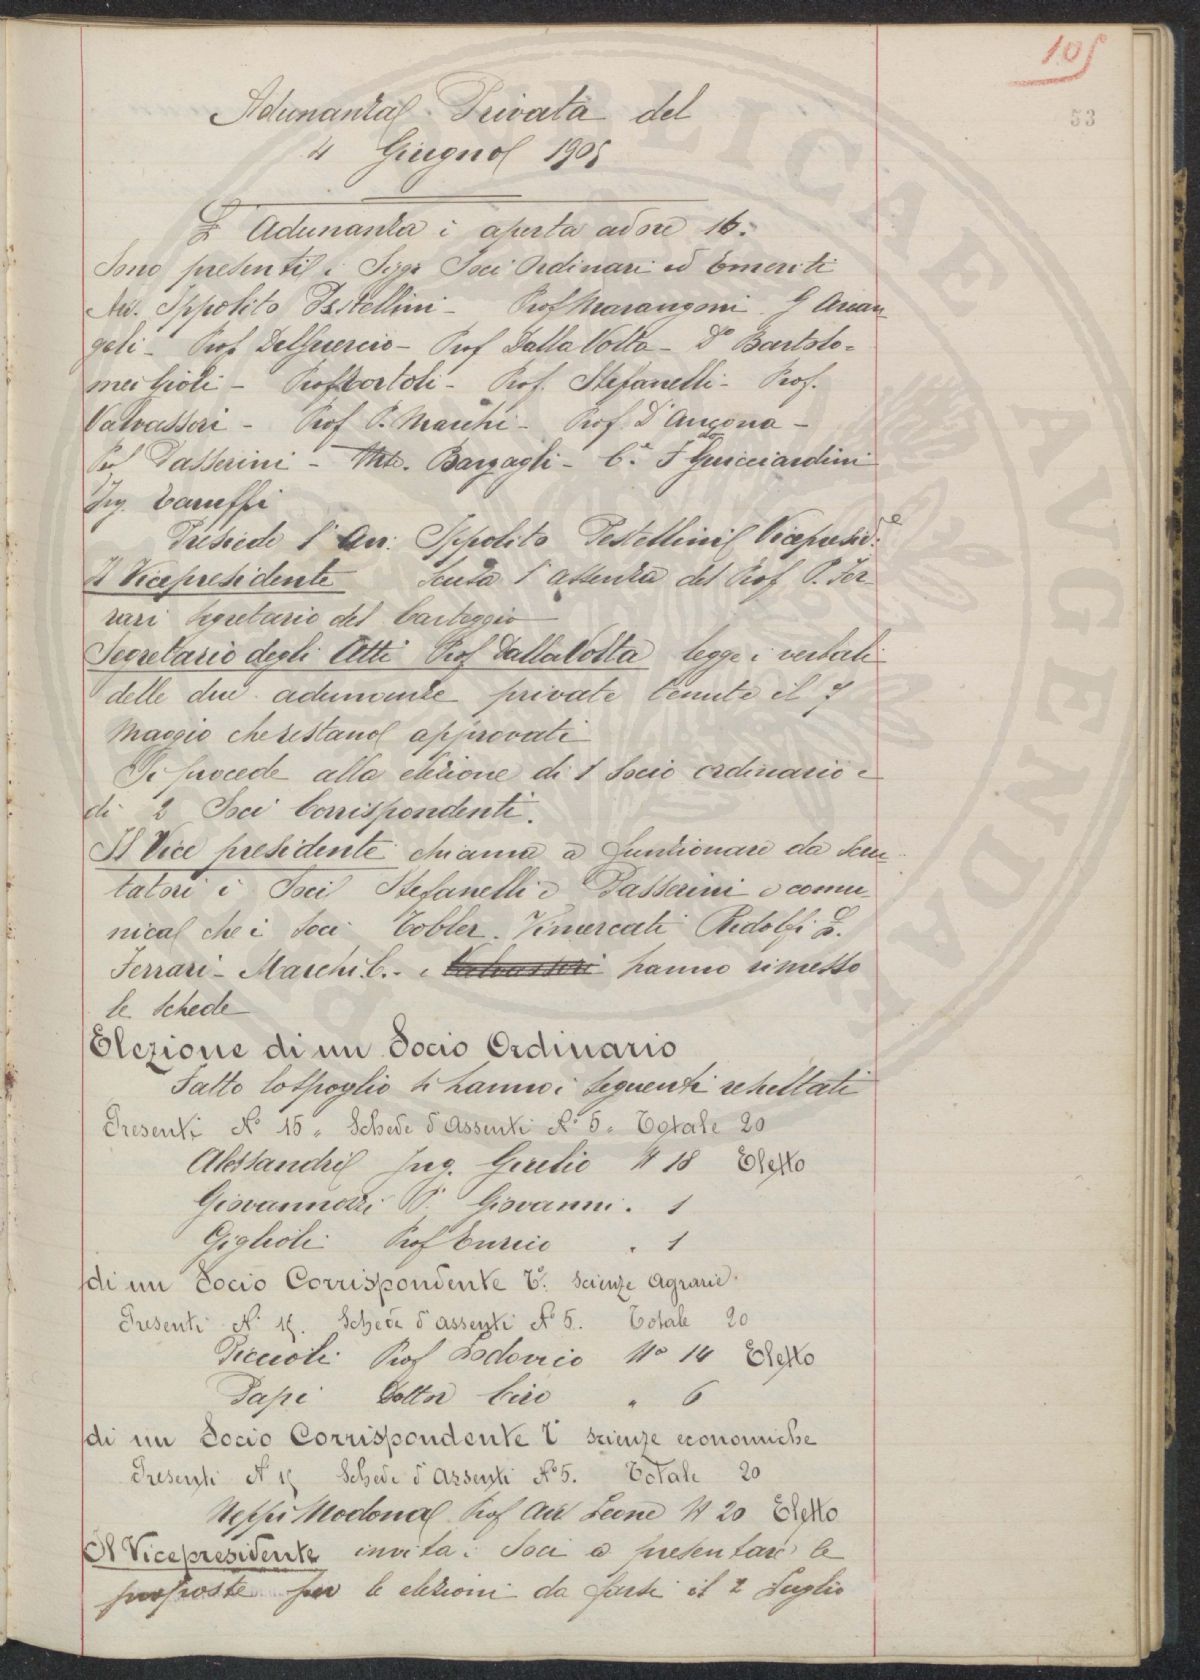 105
53
Adunanza Privata del
4 Giugno 1905
L'Adunanza è aperta ad ore 16.
Sono presenti i Sigri Soci Ordinari ed Emeriti
Avv. Ippolito Pestellini - Prof Marangoni G Arcan-
geli - Prof DelGuercio - Prof DallaVolta - Dr Bartolo-
mei Gioli - Prof Bortoli - Prof. Stefanelli - Prof.
Valvassori - Prof P. Marchi - Prof. D'Ancona -
Prof Passerini - March. Bargagli - Ce F Guicciardini
Ing. Taruffi
Presiede l'Avv. Ippolito Pestellini Vicepreside
Il Vicepresidente Scusa l'assenza del Prof P. Fer-
rari Segretario del Carteggio
Segretario degli Atti Prof DallaVolta legge i verbali
delle due adunanze private tenute il 7
Maggio che restano approvati
Si procede alla elezione di 1 Socio ordinario e
di 2 Soci Corrispondenti.
Il Vice presidente chiama a funzionare da scru-
tatori i Soci Stefanelli e Passerini e comu-
nica che i Soci Tobler. Vimercati Ridolfi L.
Ferrari - Marchi C. - e Valvassori hanno rimesso
le schede
Elezione di un Socio Ordinario
Fatto lo spoglio si hanno i seguenti resultati
Presenti No 15 „ Schede d'Assenti No 5 „ Totale 20
Alessandri Ing. Girelio N 18 Eletto
Giovannozzi P. Giovanni . 1
Giglioli Prof Enrico . 1
di un Socio Corrispondente Ts. Scienze Agrarie.
Presenti No 15. Schede d'assenti No 5. Totale 20
Piccioli Prof Lodovico No 14 Eletto
Papi Dottor Ciro „ 6
di un Socio Corrispondente Ts scienze economiche
Presenti No 15 Schede d'Assenti No 5. Totale 20
Neppi Modona Prof Avv Leone N 20 Eletto
Il Vicepresidente invita i Soci a presentare le
proposte per le elezioni da farsi il 2 Luglio